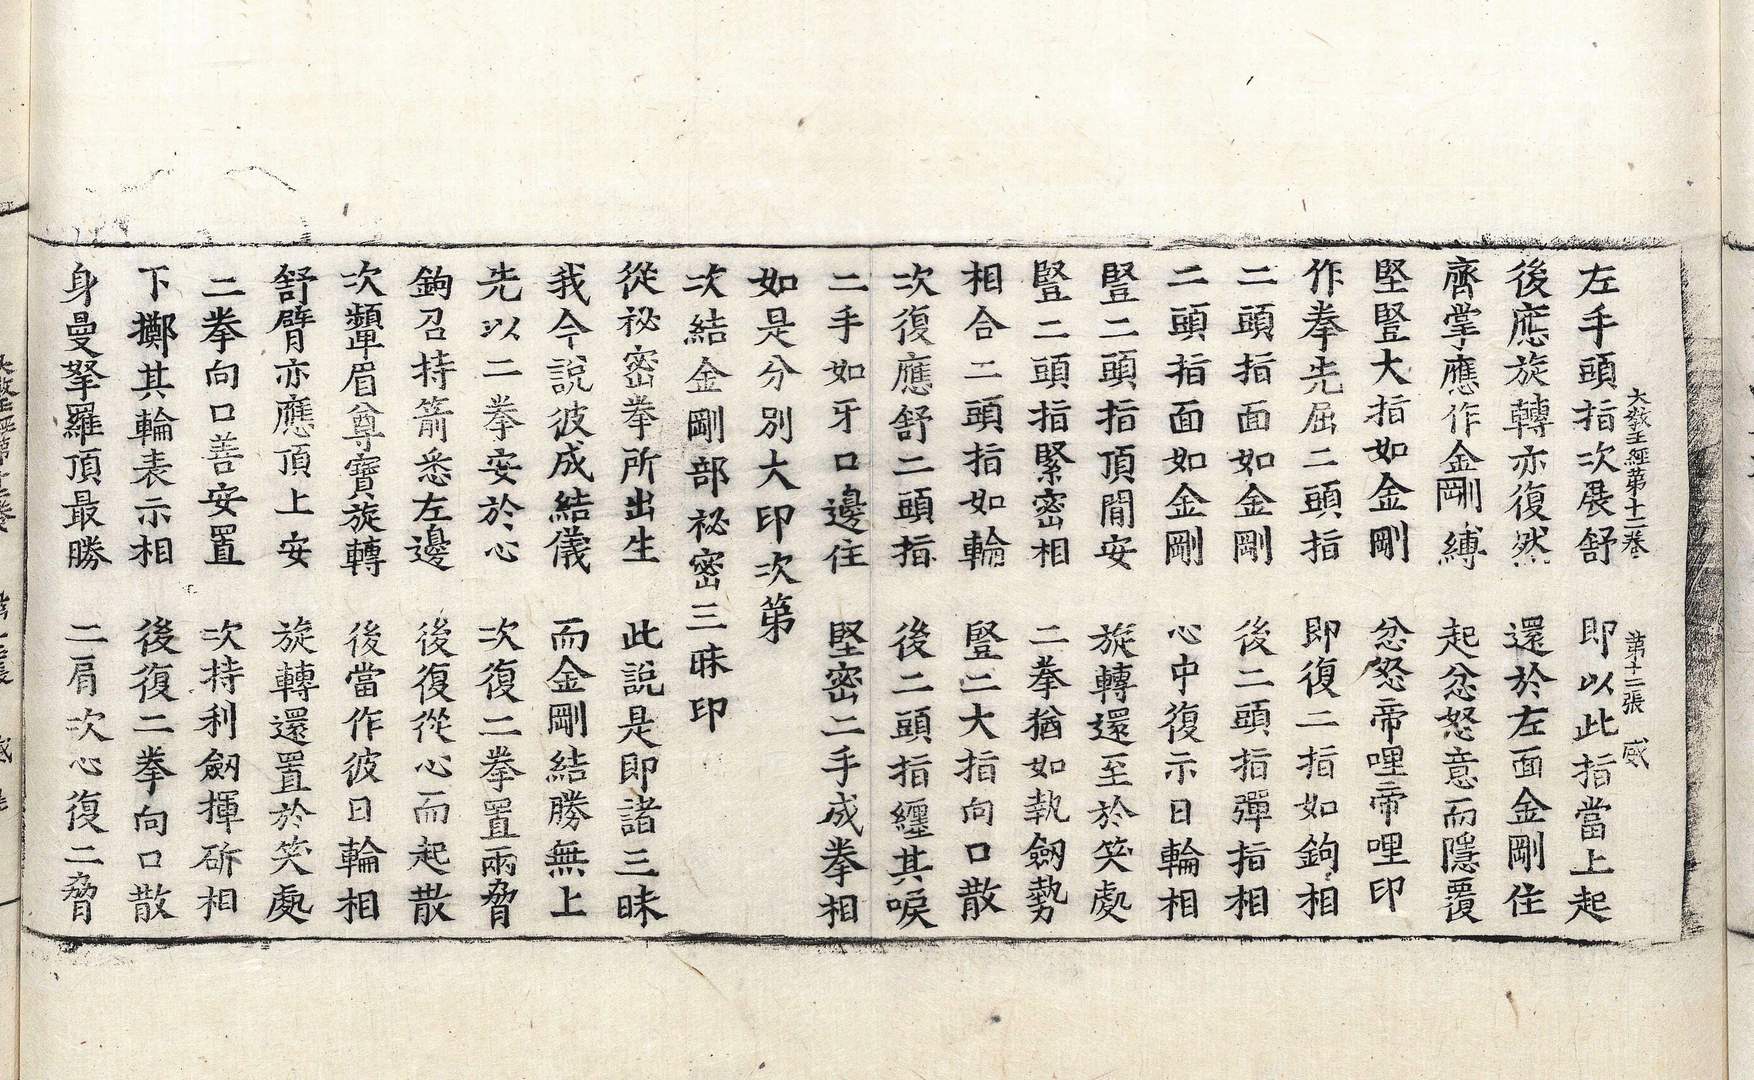 大教王經第十二卷 第十二張 盛
左手頭指次展舒 即以此指當上起
後應旋轉亦復然 還於左面金剛住
齊掌應作金剛縛 起忿怒意而隱覆
堅豎大指如金剛 忿怒帝哩帝哩印
作拳先屈二頭指 即復二指如鉤相
二頭指面如金剛 後二頭指彈指相
二頭指面如金剛 心中復示日輪相
豎二頭指頂間安 旋轉還至於笑處
豎二頭指緊密相 二拳猶如執劒勢
相合二頭指如輪 豎二大指向口散
次復應舒二頭指 後二頭指纏其唳
二手如牙口邊住 堅密二手成拳相
如是分別大印次第
次結金剛部祕密三昧印
從祕密拳所出生 此說是即諸三昧
我今說彼成結儀 而金剛結勝無上
先以二拳安於心 次復二拳置兩脅
鉤召持箭悉左邊 後復從心而起散
次顰眉尊寶旋轉 後當作彼日輪相
舒臂亦應頂上安 旋轉還置於笑處
二拳向口善安置 次持利劒揮斫相
下擲其輪表示相 後復二拳向口散
身曼拏羅頂最勝 二肩次心復二脅